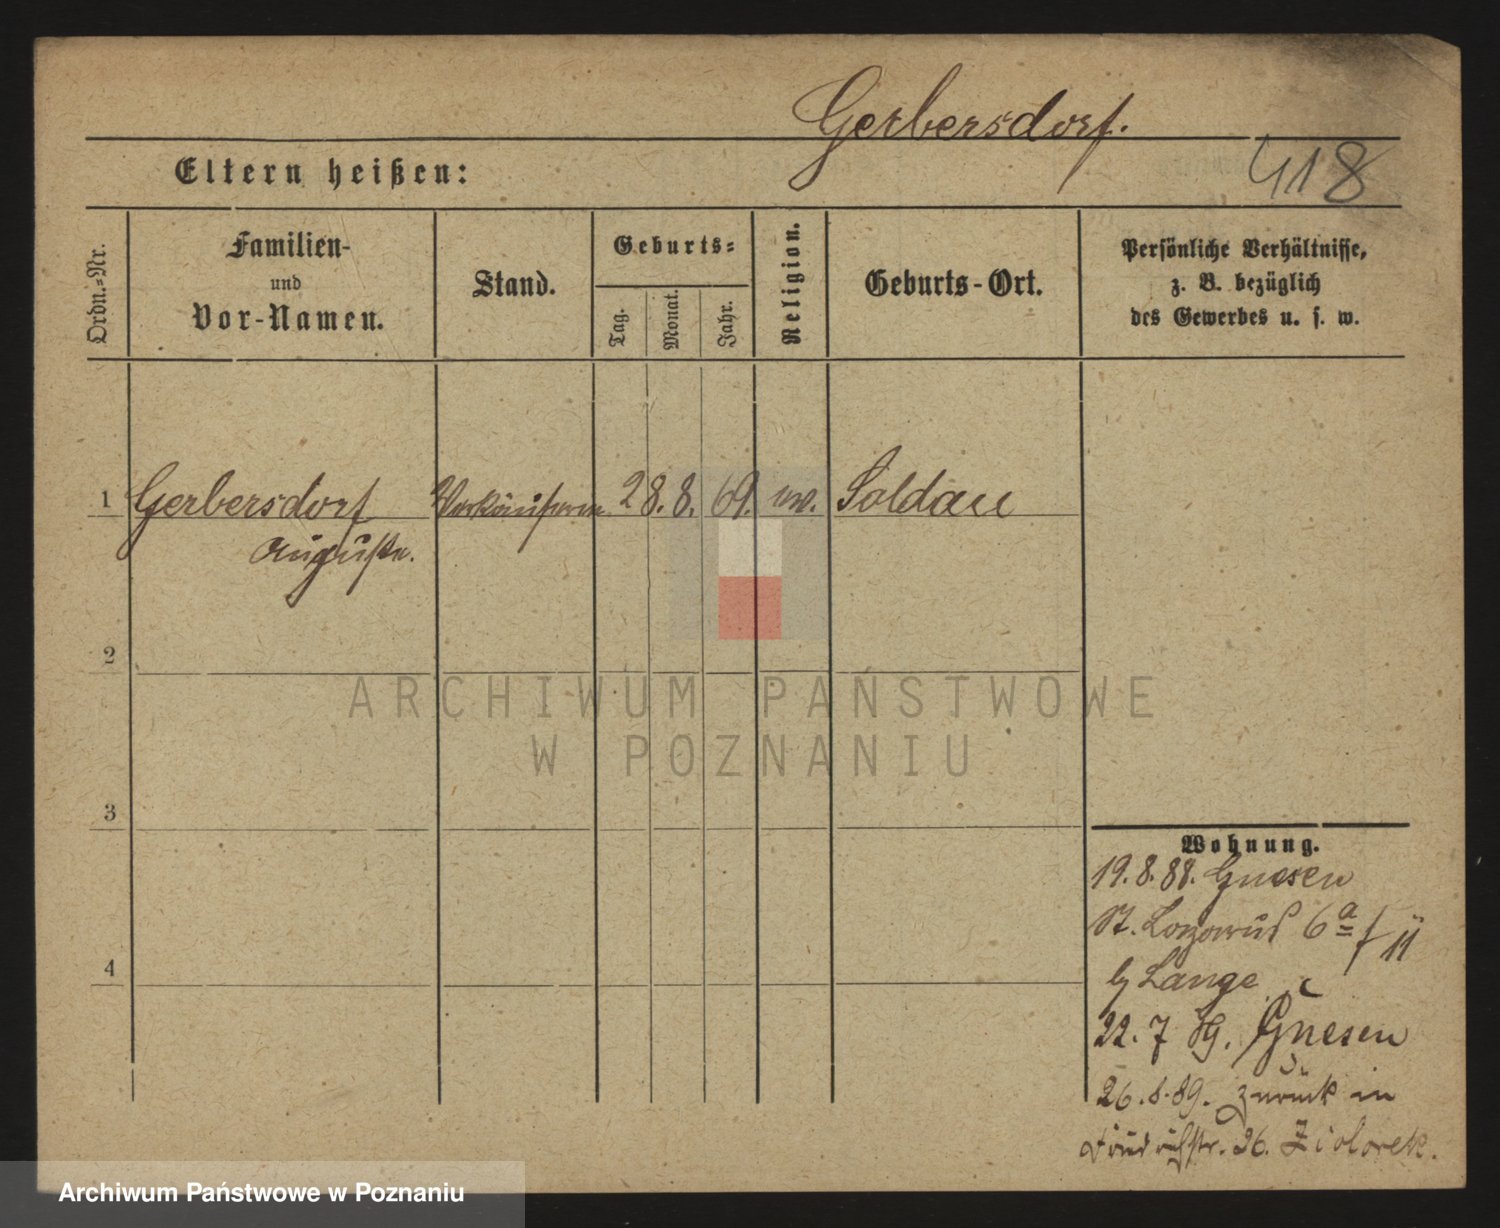 Gerbersdorf.
418
Eltern heißen:
Ordn.=Nr.
Familien-
und
Vor-Namen.
Stand.
Geburts=
Tag.
Monat.
Jahr.
Religion.
Geburts-Ort.
Persönliche Verhältnisse,
z. B. bezüglich
des Gewerbes u. s. w.
1 Gerbersdorf Verkäuferin 28. 8. 69. ev. Soldau
Auguste.
2
3
4
ARCHIWUM PAŃSTWOWE
W POZNANIU
Wohnung.
19. 8. 88. Gnesen
St. Lazarus 6a
b/ Lange
22. 7 89. Gnesen
26. 8. 89. zurück in
26.
Archiwum Państwowe w Poznaniu